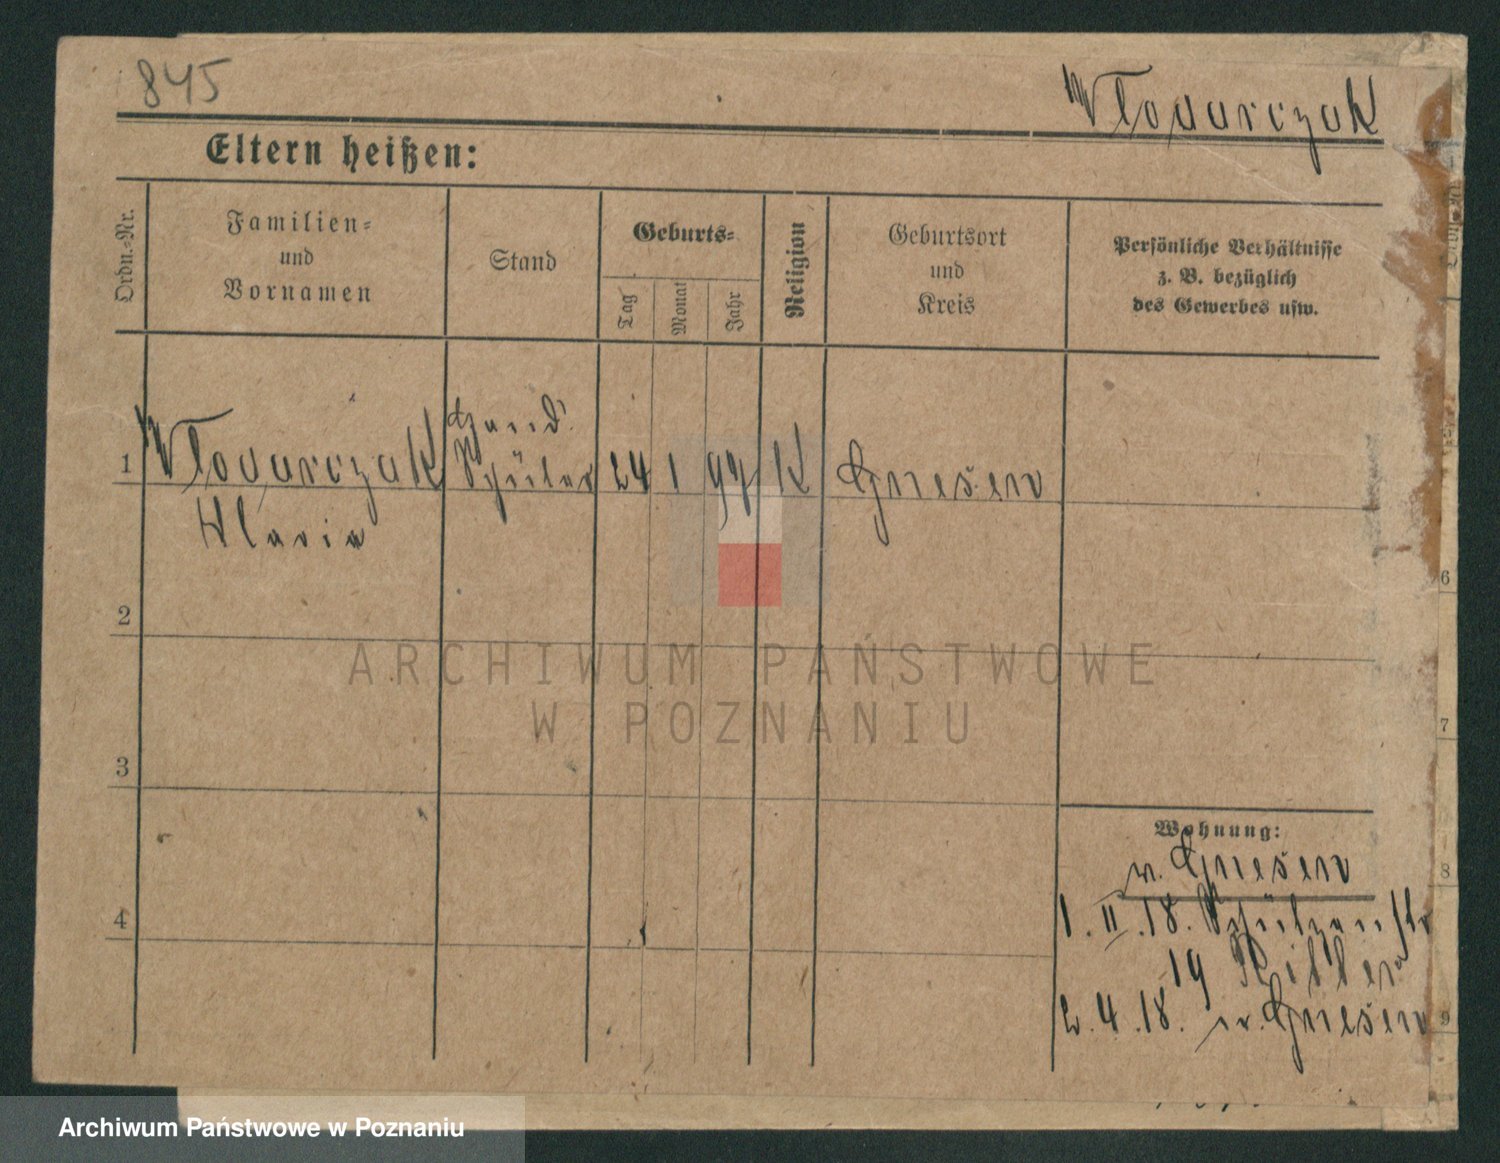 845
Wlodarczak
Eltern heißen:
Ordn.-Nr.
Familien-
und
Vornamen
Stand
Geburts-
Tag
Monat
Jahr
Religion
Geburtsort
und
Kreis
Persönliche Verhältnisse
z. B. bezüglich
des Gewerbes usw.
1
Wlodarczak
Maria
Schüler
24
1
97
K
Gnesen
2
3
4
Wohnung:
v. Gnesen
1. II. 18. Schützenstr
19
2. 4. 18. n. Gnesen
6
7
8
9
ARCHIWUM PAŃSTWOWE
W POZNANIU
Archiwum Państwowe w Poznaniu